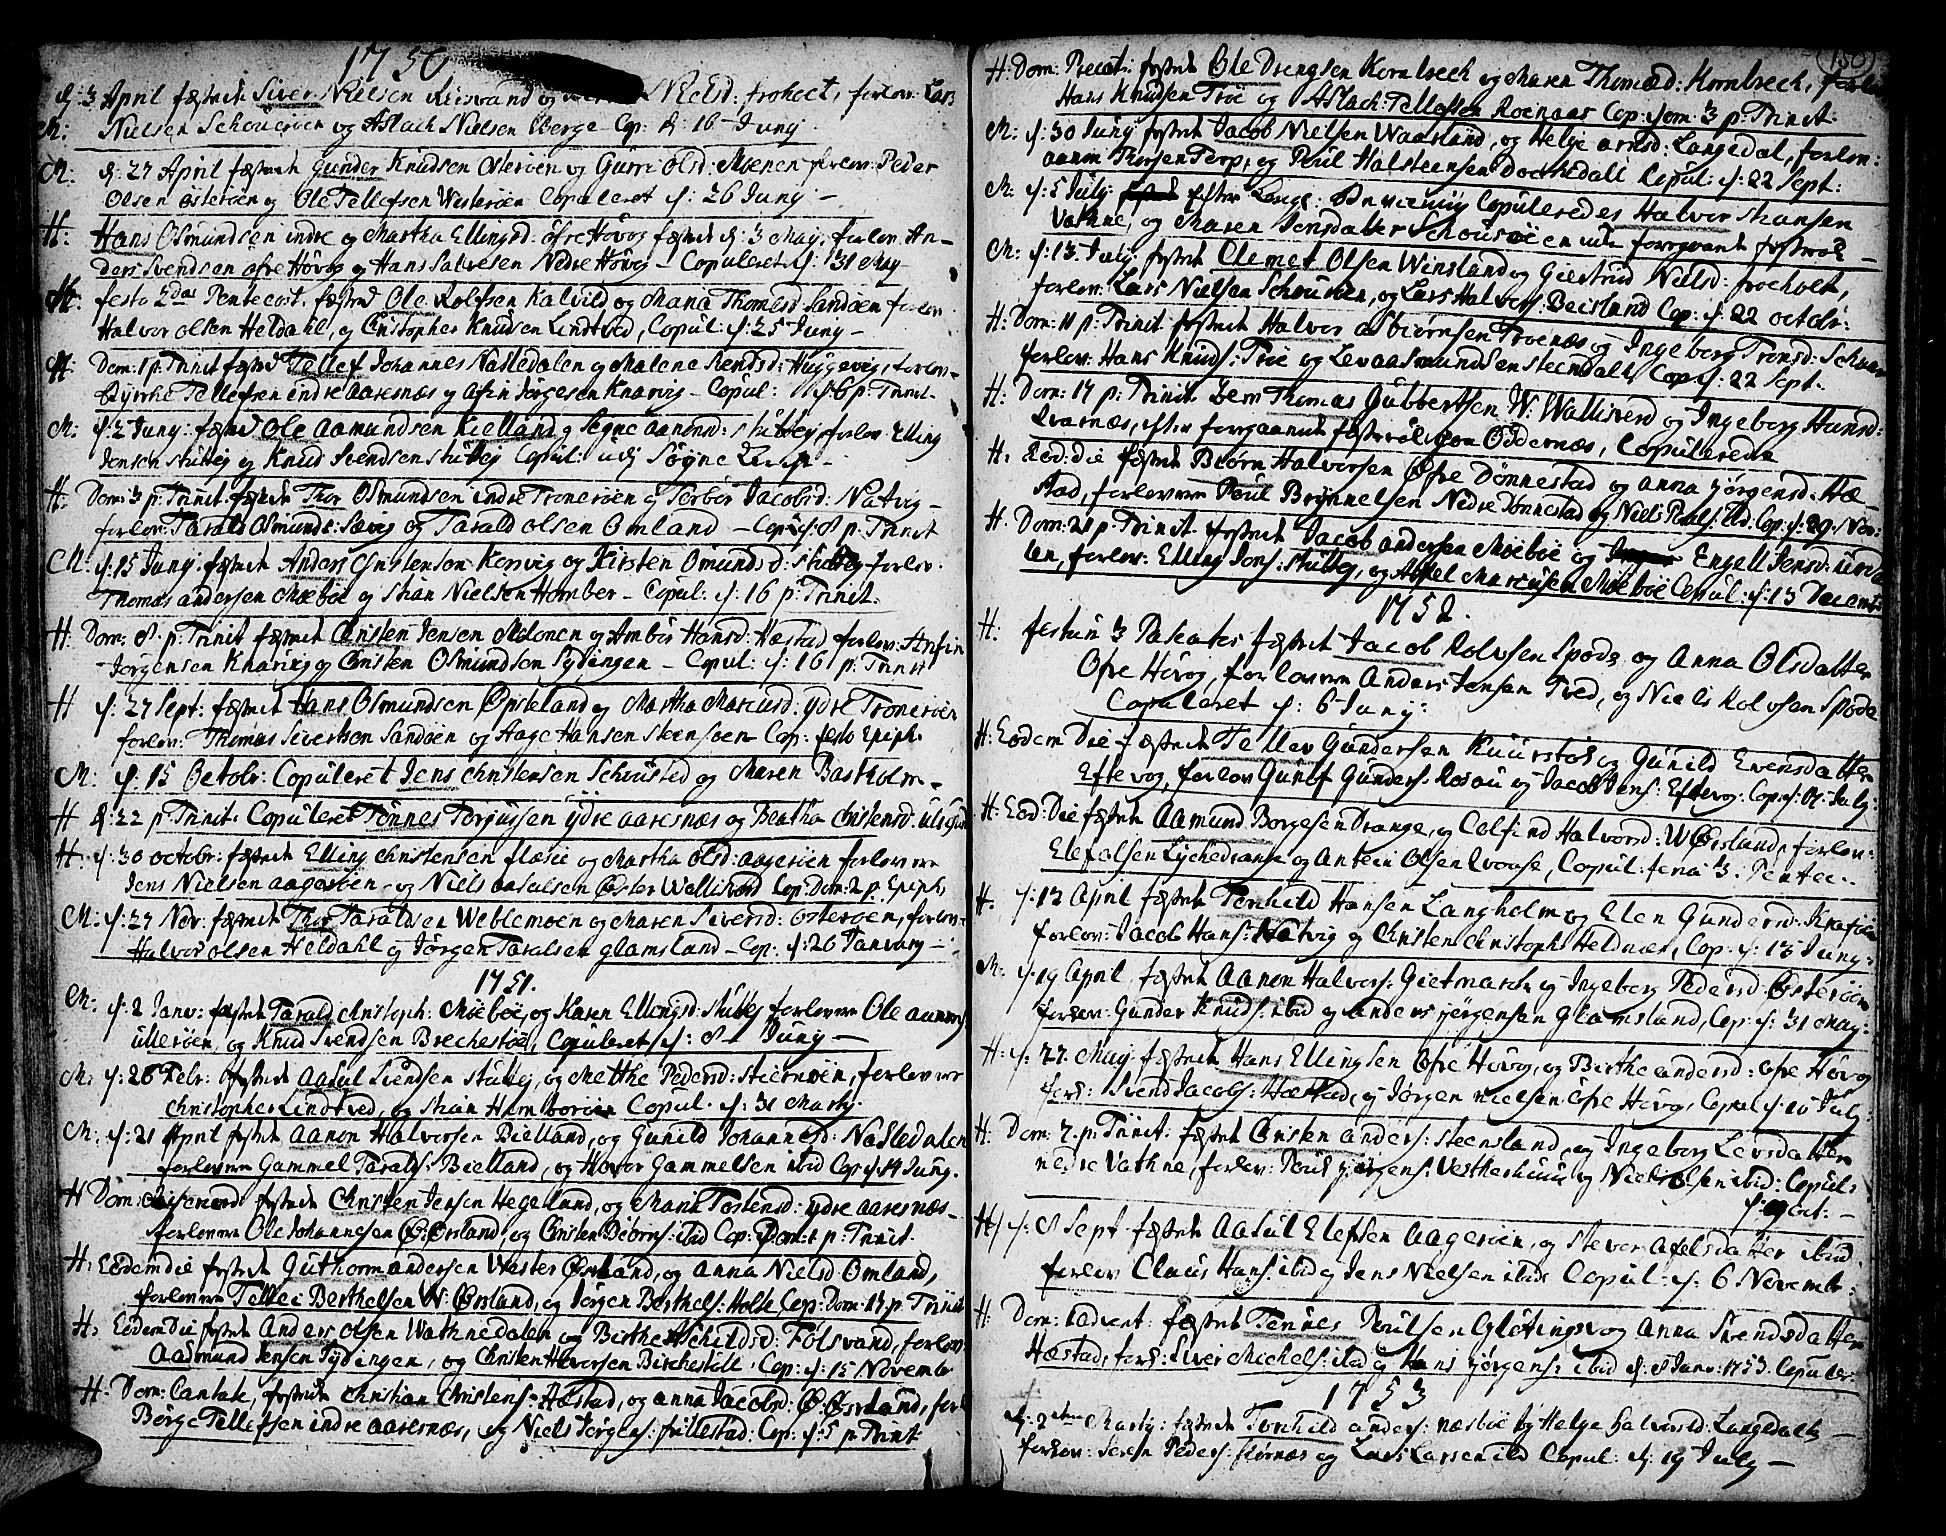 1750
d: 3 April fæstet Siver Nielsen Risvand og Nielsd: froholt, forlov: Lars
M. Nielsen Schouerøen og Aslach Nielsen Berge Cop: d: 16 Junj
M: d: 27 April fæstet Gunder Knudsen Østerøen og Gurri Olsd: Moenen forlov: Peder
Olsen østerøen og Ole Tellefsen Westerøen Copuleret d: 26 Junj
H: Hans Osmundsen indre og Martha Ellingsd: øfre Høvog fæstet d: 3 Maj. forlov: An-
ders Svendsen øfre Høvog og Hans Salvesen Nedre Høvog Copuleret d: 31 Maj
festo 2da Pentecost: fæsted Ole Rolfsen Kalvild og Maria Thomesd Sandøen forlov:
Halvor olsen Heldahl, og Cristopher Knudsen Lindtved, Copul: d: 25 Junj
H: Dom: 1 p: Trinit fæsted Tellef Johannes Nasledalen og Malene Rendsd: Huggevig, forlov:
Byrthe Tellefsen indre aaresnæs og Afin Jørgesen Knarvig Copul: 16 p: Trinit.
M: d: 2 Junj: fæsted Ole Aamundsen Kielland og Segne aanensd: Skuttej, forlov: Elling
Jensen Skuttej og Knud Svendsen skuttej Copul: udj Søgne
H: Dom: 3 p: Trinit. fæstet Thor Osmundsen indre Tronerøen og Torbor Jacobsd: Natvig
forlov: Tarald Osmunds: Sævig og Tarald olsen Omland Cop: 8 p: Trinit
M: d: 15 Junj: fæstet Anders Christensen Korsvig og Kirsten Omundsd: skuttej forlov:
Thomas andersen Mæbøe og Stian Nielsen Homber Copul: d: 16 p: Trinit.
H: Dom: 8. p: Trinit fæstet Christen Jensen Meldonen og Ambor Hansd: Hæstad forlov: Anfin
Jørgensen Knarvig og Cristen Osmundsen Sydingen Copul: d: 16 p: Trinit
H d: 27 Sept: fæstet Hans Osmundsen Øysteland og Martha Marcusd: ydre Tronerøen
forlov: Thomas Sivertsen Sandøen og Aage Hansen Steensøen Cop: festo Epiph:
M: d: 15 Octobr: Copuleret Jens Christensen Schousted og Maren Bastholm
H d: 22 p: Trinit: Copuleret Tønnes Torgussen ydre aaresnæs og Bentha Christensd:
H: d: 30 octobr: fæstet Elling Christensen flæsøe og Martha Olsd: aagerøen forlovere
Jens Nielsen aagerøen og Niels aasulsen Øster Wallisverd Cop: Dom: 2 p: Epiph:
M: d: 27 Nov: fæstet Thor Taraldsen Weblemoen og Maren Siversd: østerøen, forlov:
Halvor olsen Heldahl og Jørgen Taralsen glamsland Cop: d: 26 Januarij
1751.
M: d: 2 Janv: fæstet Tarald Christoph: Møebøe, og Karen Ellingsd: skuttej forlovere Ole aanens:
ullerøen, og Knud Svendsen Brechestøe, Copuleret d: 8 Junj
M: d: 26 Febr: fæstet Aasul Svendsen skuttej, og Metthe Pedersd: Stiernøen, forlovere
Christopher Lindtved, og Stian Homborøen Copul: d: 31 Martj.
M: d: 21 April fæstet Aanon Halvorsen Bielland, og Gunild Johannesd: Nasledalen
forlovere Gammel Taralds: Bielland, og Hovor Gammelsen ibid Cop: d: 14 Junj.
H Dom: fæstet Christen Jensen Hegeland, og Maria Tostensd: ydre aaresnæs
forlovere Ole Johannesen Ø: Øysland, og Christen Biörns: ibid Cop: Dom: 1 p: Trinit.
H: Eodem die fæstet Guthorm andersen Wester Øysland, og Anna Nielsd: Omland,
forlovere Tellei Berthelsen W: Øysland, og Jørgen Berthels: Holte Cop: Dom: 17 p: Trinit
H: Eodem Die fæstet Anders Olsen Wathnedalen og Birthe Aschildsd: Følsvand, forlov:
Aadmund Jensen Sydingen, og Christen Hovorsen Birchestøll. Cop: d: 15 Novembr
H: Dom: Cantate, fæstet Christian Christens: Hæstad, og anna Jacobsd: Ø: Øysland, forl:
Børge Tellefsen indre aaresnæs, og Niels Jørgens: frillestad: Cop: d: 5 p: Trinit
(150)
H: Dom: Recat: fæstet Ole Drengsen Kornbrech og Maren Thomæd: Kornbrech, forlov:
Hans Knudsen Trøe og Aslach Tellefsen Roenaas Cop: Dom: 3 p: Trinit:
M: d: 30 Junj fæstet Jacob Nielsen Waarlund, og Helje arnsd: Langedal, forlov:
aanen Thorsen Terp, og Poul Halsteensen Dochedall Copul: d: 22 Sept:
M: d: 5 Julj efter Copuleredes Halvor Stiansen
Vathne, og Maren Jensdatter Schousøen uden forregaaende festerøl
M: d: 13 Julj fæstet Clemet Olsen Winsland og Giertrud Nielsd: froeholt,
forlov: Lars Nielsen Schousøen, og Lars Halvors: Beisland Cop: d: 22 octobr:
H: Dom: 11 p: Trinit fæstet Halvor Asbiørnsen Troenæs og Ingeborg Tronsd:
forlov: Hans Knuds: Trøe og Leu aasmundsen Steendalen Cop: d: 22 Sept.
H: Dom: 17 p: Trinit: bem Thomas Gubbertsen W: Wallisverd og Ingeborg Hansd:
Qvarnæs, efter forregaaende festerøl paa Oddernæs, Copulerede
H: Eod: die fæstet Biørn Halvorsen Øfre Dønnestad og anna jørgensd: Hæ-
stad, forlovere Poul Brynnelsen Nedre Dønnestad og Niels Poals: ibd. Cop: d: 29 Nov:
H: Dom: 21 p: Trinit. fæstet Jacob andersen Møebøe og Engell Jensd:
forlov: Elling Jons: skuttej, og Axsel Marcusen Møebøe Copul: d: 13 Decembr
1752.
H: festum 3 Paschatos fæstet Jacob Rolvsen Spøde, og Anna Olsdatter
Øfre Høvog, forlovere Anders Jensen Tved, og Niels Rolvsen Spøde
Copuleret d: 6 Junj:
H: Eodem Die fæstet Tellev Gundersen Knurstøe og Gunild Evensdatter
Eftevog, forlov Gunlf Gunders: Rosøu og Jacob Jens: Eftevog: Cop: d: 8 Julj:
H: Eod: Die fæstet Aamund Borgesen Drange, og Celfind Halvorsd: W: Øysland, forlov:
Elef olsen Lychedrange og Antein Olsen Qvaase, Copul: feria 3. Pentec:
H: d: 12 April fæstet Terchild Hansen Langholm og Elen Gundersd:
forlov: Jacob Hans: Natvig og Cristen Christoph: Heldnæs, Cop: d: 13 Junj:
M: d: 19 April fæstet Aanon Halvors: Gietmarch og Ingeborg Pedersd: Østerøen
forlov: Gunder Knuds: ibid og anders jørgensen Glamsland, Cop: d: 31 Maj:
H: d: 22. Maj fæstet Hans Ellingsen Øfre Høvog, og Birthe andersd: Øfre Høvog
forl: Svend Jacobs: Hæstad, og Jørgen nielsen øfre Høvog, Copul d: 10 Julj:
H: Dom: 7. p: Trinit: fæstet Cristen anders: Steensland, og Ingeborg Levsdatter
nedre Vathne, forlov: Poul jørgens: Vesterhuus og Niels Olsen ibid: Copul:
d: 9 oct:
H: d: 8 Sept fæstet Aasul Elefsen Aagerøen, og Siever Axelsdatter ibid
forlov Claus Hans: ibid og Jens Nielsen ibid: Copul: d: 6 Novembr:
H: Dom: 1 advent: fæstet Tønnes Poulsen Gløtings og Anna Svendsdatter
Hæstad, forl: Siver Michels: ibid og Hans jørgens: ibid d: 8 Janv: 1753. Copuler:
1753
d: 2 Martj: fæstet Torchild anders: næsbøe og Helge Halvorsd: Langedals
forlov: Søren Peders: fiørnæs og Lars Larsen ibid Copul: d: 19 Julj